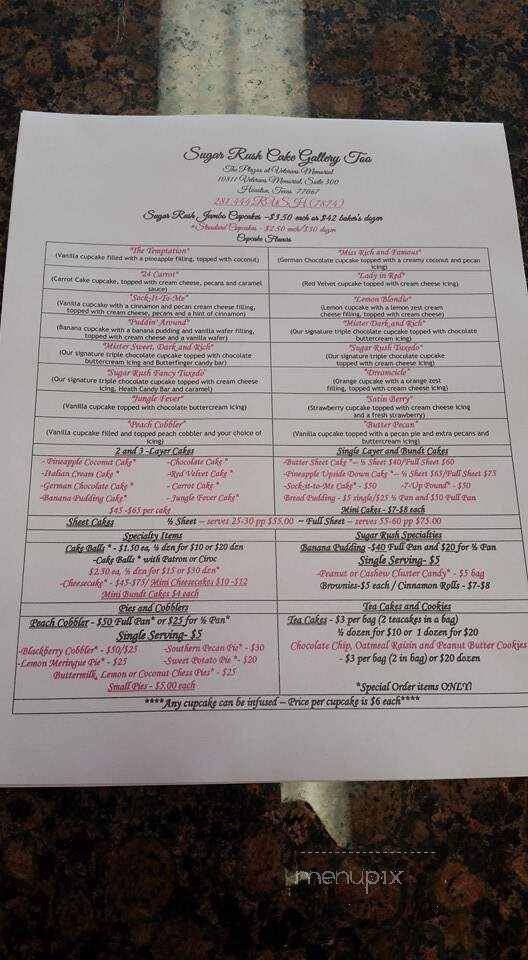 Sugar Rush Cake Gallery Too
The Plazas at Veterans Memorial
10811 Veterans Memorial, Suite 300
Houston, Texas 77067
281.444.RUSH (7874)
Sugar Rush Jumbo Cupcakes ~$3.50 each or $42 baker's dozen
*Standard Cupcakes - $2.50 each/$30 dozen
Cupcake Flavors
"The Temptation"
(Vanilla cupcake filled with a pineapple filling, topped with coconut)
"Miss Rich and Famous"
(German Chocolate cupcake topped with a creamy coconut and pecan
icing)
"24 Carrot"
(Carrot Cake cupcake, topped with cream cheese, pecans and caramel
sauce)
"Lady in Red"
(Red Velvet cupcake topped with cream cheese icing)
"Sock-It-To-Me"
(Vanilla cupcake with a cinnamon and pecan cream cheese filling,
topped with cream cheese, pecans and a hint of cinnamon)
"Lemon Blondie"
(Lemon cupcake with a lemon zest cream
cheese filling, topped with cream cheese)
"Puddin' Around"
(Banana cupcake with a banana pudding and vanilla wafer filling,
topped with cream cheese and a vanilla wafer)
"Mister Dark and Rich"
(Our signature triple chocolate cupcake topped with chocolate
buttercream icing)
"Mister Sweet, Dark and Rich"
(Our signature triple chocolate cupcake topped with chocolate
buttercream icing and Butterfinger candy bar)
"Sugar Rush Tuxedo"
(Our signature triple chocolate cupcake
topped with cream cheese icing)
"Sugar Rush Fancy Tuxedo"
(Our signature triple chocolate cupcake topped with cream cheese
icing, Heath Candy Bar and caramel)
"Dreamcicle"
(Orange cupcake with a orange zest
filling, topped with cream cheese icing)
"Jungle Fever"
(Vanilla cupcake topped with chocolate buttercream icing)
"Satin Berry"
(Strawberry cupcake topped with cream cheese icing
and a fresh strawberry)
"Peach Cobbler"
(Vanilla cupcake filled and topped peach cobbler and your choice of
icing)
"Butter Pecan"
(Vanilla cupcake topped with a pecan pie and extra pecans and
buttercream icing)
2 and 3 -Layer Cakes
-Pineapple Coconut Cake* -Chocolate Cake *
-Italian Cream Cake * -Red Velvet Cake *
-German Chocolate Cake * - Carrot Cake *
-Banana Pudding Cake* - Jungle Fever Cake*
$45 -$65 per cake
Single Layer and Bundt Cakes
-Butter Sheet Cake *~ ½ Sheet $40/Full Sheet $60
-Pineapple Upside Down Cake *~ ½ Sheet $65/Full Sheet $73
-Sock-it-to-Me Cake* - $50 -7-Up Pound* - $50
Bread Pudding - $5 single/$25 ½ Pan and $50 Full Pan
Mini Cakes - $7-$8 each
Sheet Cakes ½ Sheet ~ serves 25-30 pp $55.00 ~ Full Sheet ~ serves 55-60 pp $75.00
Specialty Items
Cake Balls * - $1.50 ea, ½ dzn for $10 or $20 dzn
-Cake Balls * with Patron or Ciroc
$2.50 ea, ½ dzn for $15 or $30 dzn*
-Cheesecake* -$45-$75/ Mini Cheesecakes $10 -$12
Mini Bundt Cakes $4 each
Sugar Rush Specialties
Banana Pudding -$40 Full Pan and $20 for ½ Pan
Single Serving- $5
-Peanut or Cashew Cluster Candy* - $5 bag
Brownies-$5 each / Cinnamon Rolls - $7-$8
Pies and Cobblers
Peach Cobbler - $50 Full Pan* or $25 for ½ Pan*
Single Serving- $5
-Blackberry Cobbler* - $50/$25 -Southern Pecan Pie* - $30
-Lemon Meringue Pie* - $25 -Sweet Potato Pie * - $20
Buttermilk, Lemon or Coconut Chess Pies* - $25
Small Pies - $5.00 each
Tea Cakes and Cookies
Tea Cakes - $3 per bag (2 teacakes in a bag)
½ dozen for $10 or 1 dozen for $20
Chocolate Chip, Oatmeal Raisin and Peanut Butter Cookies
- $3 per bag (2 in bag) or $20 dozen
*Special Order items ONLY!
****Any cupcake can be infused ~ Price per cupcake is $6 each****
menupix